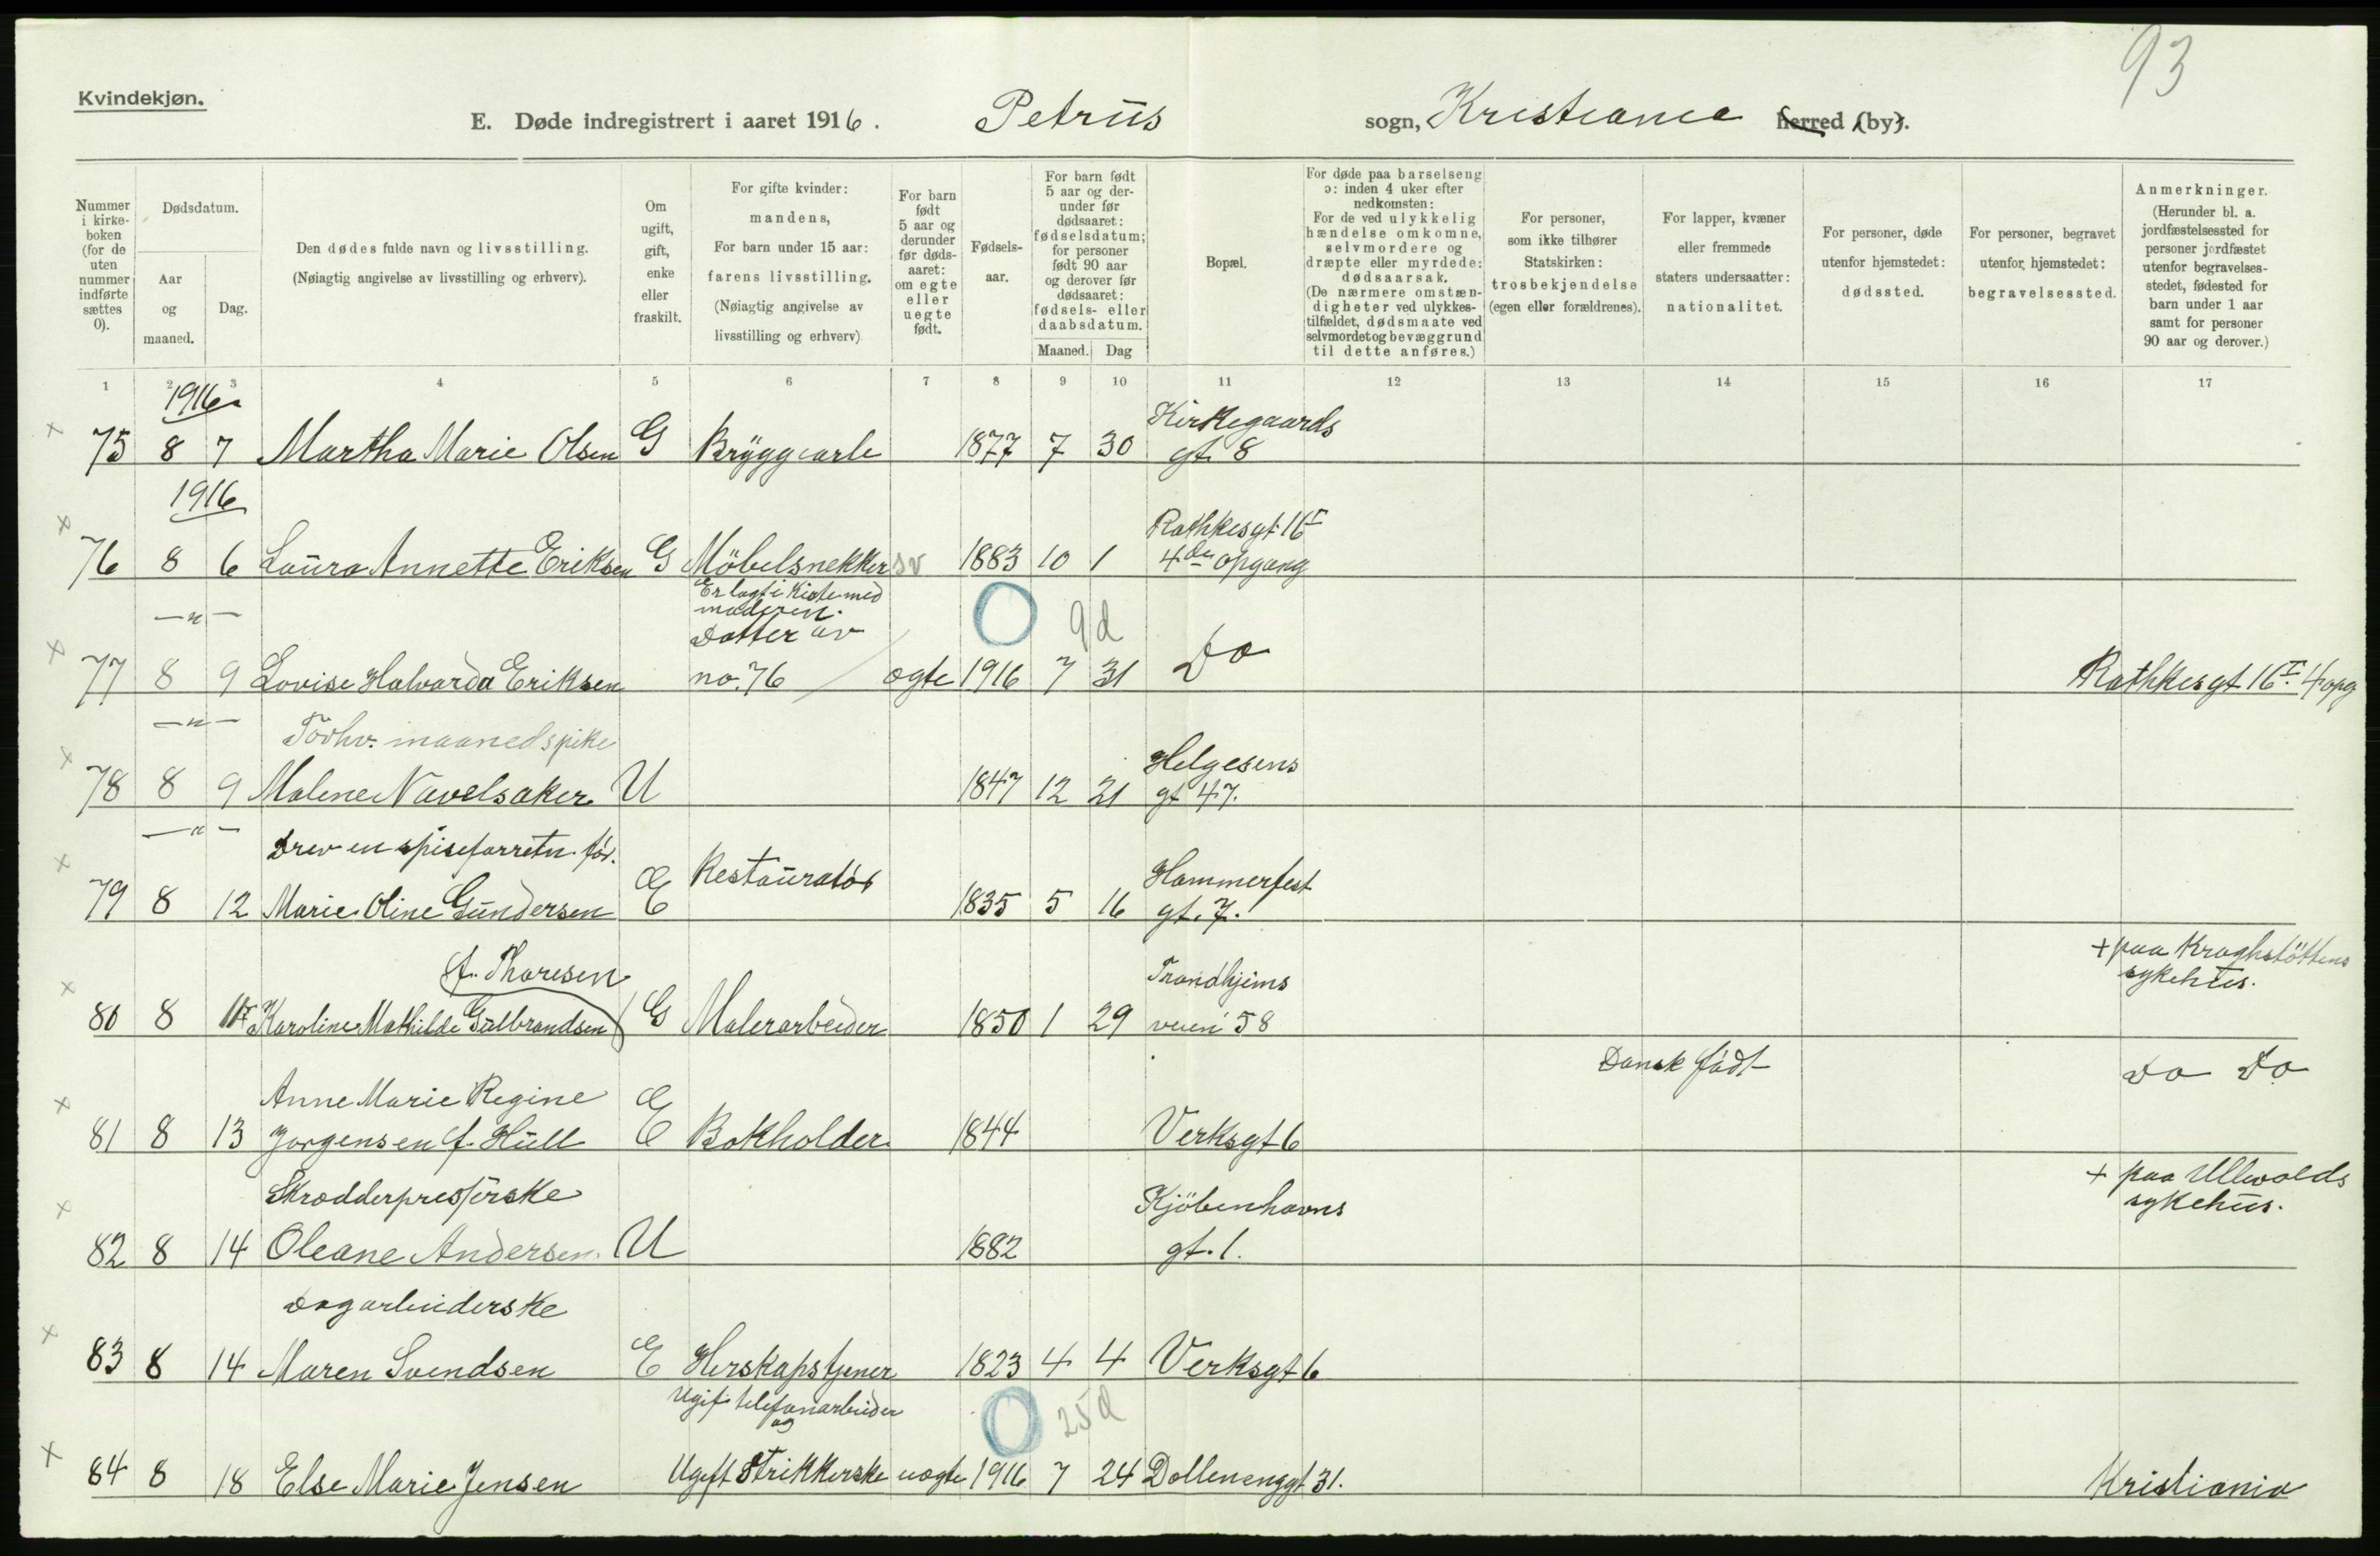 93
Kvindekjøn.
E. Døde indregistrert i aaret 1916. Petrus sogn, Kristiania herred (by).
Nummer i kirkeboken (for de uten nummer indførte sættes 0).
Dødsdatum.
Aar og maaned.
Dag.
Den dødes fulde navn og livsstilling.
(Nøiagtig angivelse av livsstilling og erhverv).
Om ugift, gift, enke eller fraskilt.
For gifte kvinder: mandens, For barn under 15 aar: farens livsstilling.
(Nøiagtig angivelse av livsstilling og erhverv)
For barn født 5 aar og derunder før dødsaaret: om egte eller uegte født.
Fødselsaar.
For barn født 5 aar og derunder før dødsaaret: fødselsdatum; for personer født 90 aar og derover før dødsaaret: fødsels- eller daabsdatum.
Maaned. Dag
Bopæl.
For døde paa barselseng ɔ: inden 4 uker efter nedkomsten: For de ved ulykkelig hændelse omkomne, selvmordere og dræpte eller myrdede: dødsaarsak.
(De nærmere omstændigheter ved ulykkestilfældet, dødsmaate ved selvmordet og bevæggrund til dette anføres.)
For personer, som ikke tilhører Statskirken: trosbekjendelse (egen eller forældrenes).
For lapper, kvæner eller fremmede staters undersaatter: nationalitet.
For personer, døde utenfor hjemstedet: dødssted.
For personer, begravet utenfor hjemstedet: begravelsessted.
Anmerkninger.
(Herunder bl. a. jordfæstelsessted for personer jordfæstet utenfor begravelsesstedet, fødested for barn under 1 aar samt for personer 90 aar og derover.)
1 2 3 4 5 6 7 8 9 10 11 12 13 14 15 16 17
1916
Kirkegaards
× 75 8 7 Martha Marie Olsen G Bryggearb 1877 7 30 gt. 8
1916
Rathkesgt 16 I
× 76 8 6 Laura Annette Eriksen G Möbelsnekker sv 1883 10 1 4de opgang
Er lagt i Kiste med
moderen.
—"— Datter av 9d
× 77 8 9 Lovise Halvarda Eriksen no. 76 ægte 1916 7 31 Do Rathkesgt 16 I. 4 opg
—"— maanedspike Helgesens
× 78 8 9 Malene Navelsaker U 1847 12 21 gt 47.
—"— Drev en spiseforretn. før. Restauratör Hammerfest
× 79 8 12 Marie Oline Gundersen E 1835 5 16 gt. 7.
f. Thoresen Trondhjems + paa Kroghstöttens
sykehus.
× 80 8 Karoline Mathilde Gulbrandsen G Malerarbeider 1850 1 29 veien 58
Anne Marie Regine Dansk født Do Do
× 81 8 13 Jorgensen f. Hull E Bokholder 1844 Verksgt 6
Skrædderpresserske Kjöbenhavns + paa Ullevolds
sykehus.
× 82 8 14 Oleane Andersen. U 1882 gt. 1.
Dagarbeiderske
× 83 8 14 Maren Svendsen E Herskapstjener 1823 4 4 Verksgt 6
Ugift telefonarbeider 25d
og
× 84 8 18 Else Marie Jensen Ugift Strikkerske uægte 1916 7 24 Dællenenggt 31. Kristiania